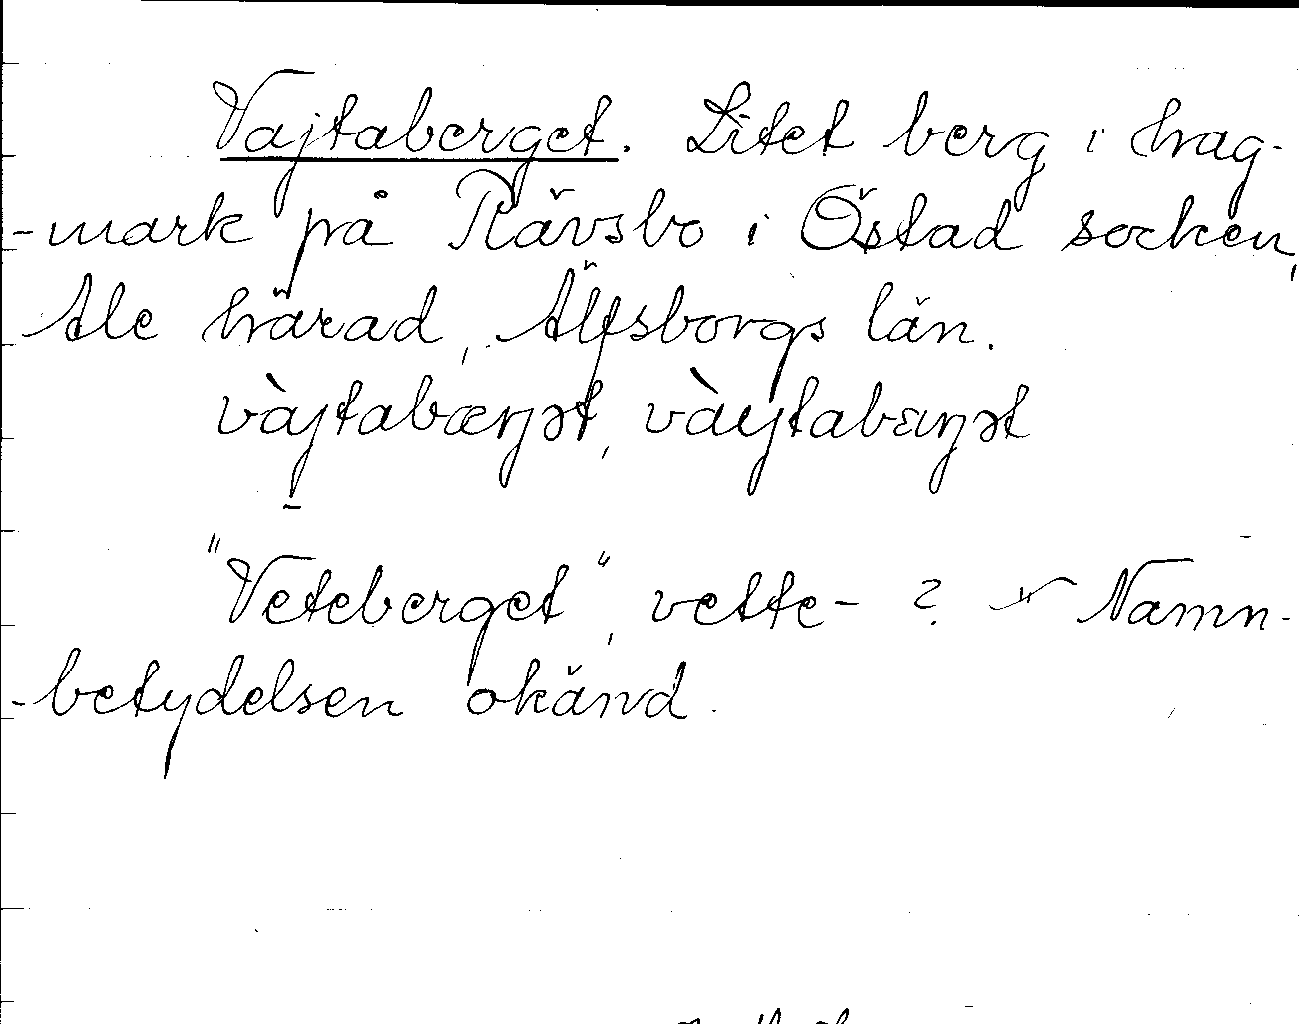 Vajtaberget. Litet berg i hag-
-mark på Rävsbo i Östad socken,
Ale härad, Älfsborgs län.
vàjtabærjət, vàyjtabɛrjət
"Veteberget", vette- ? Namn-
-betydelsen okänd.